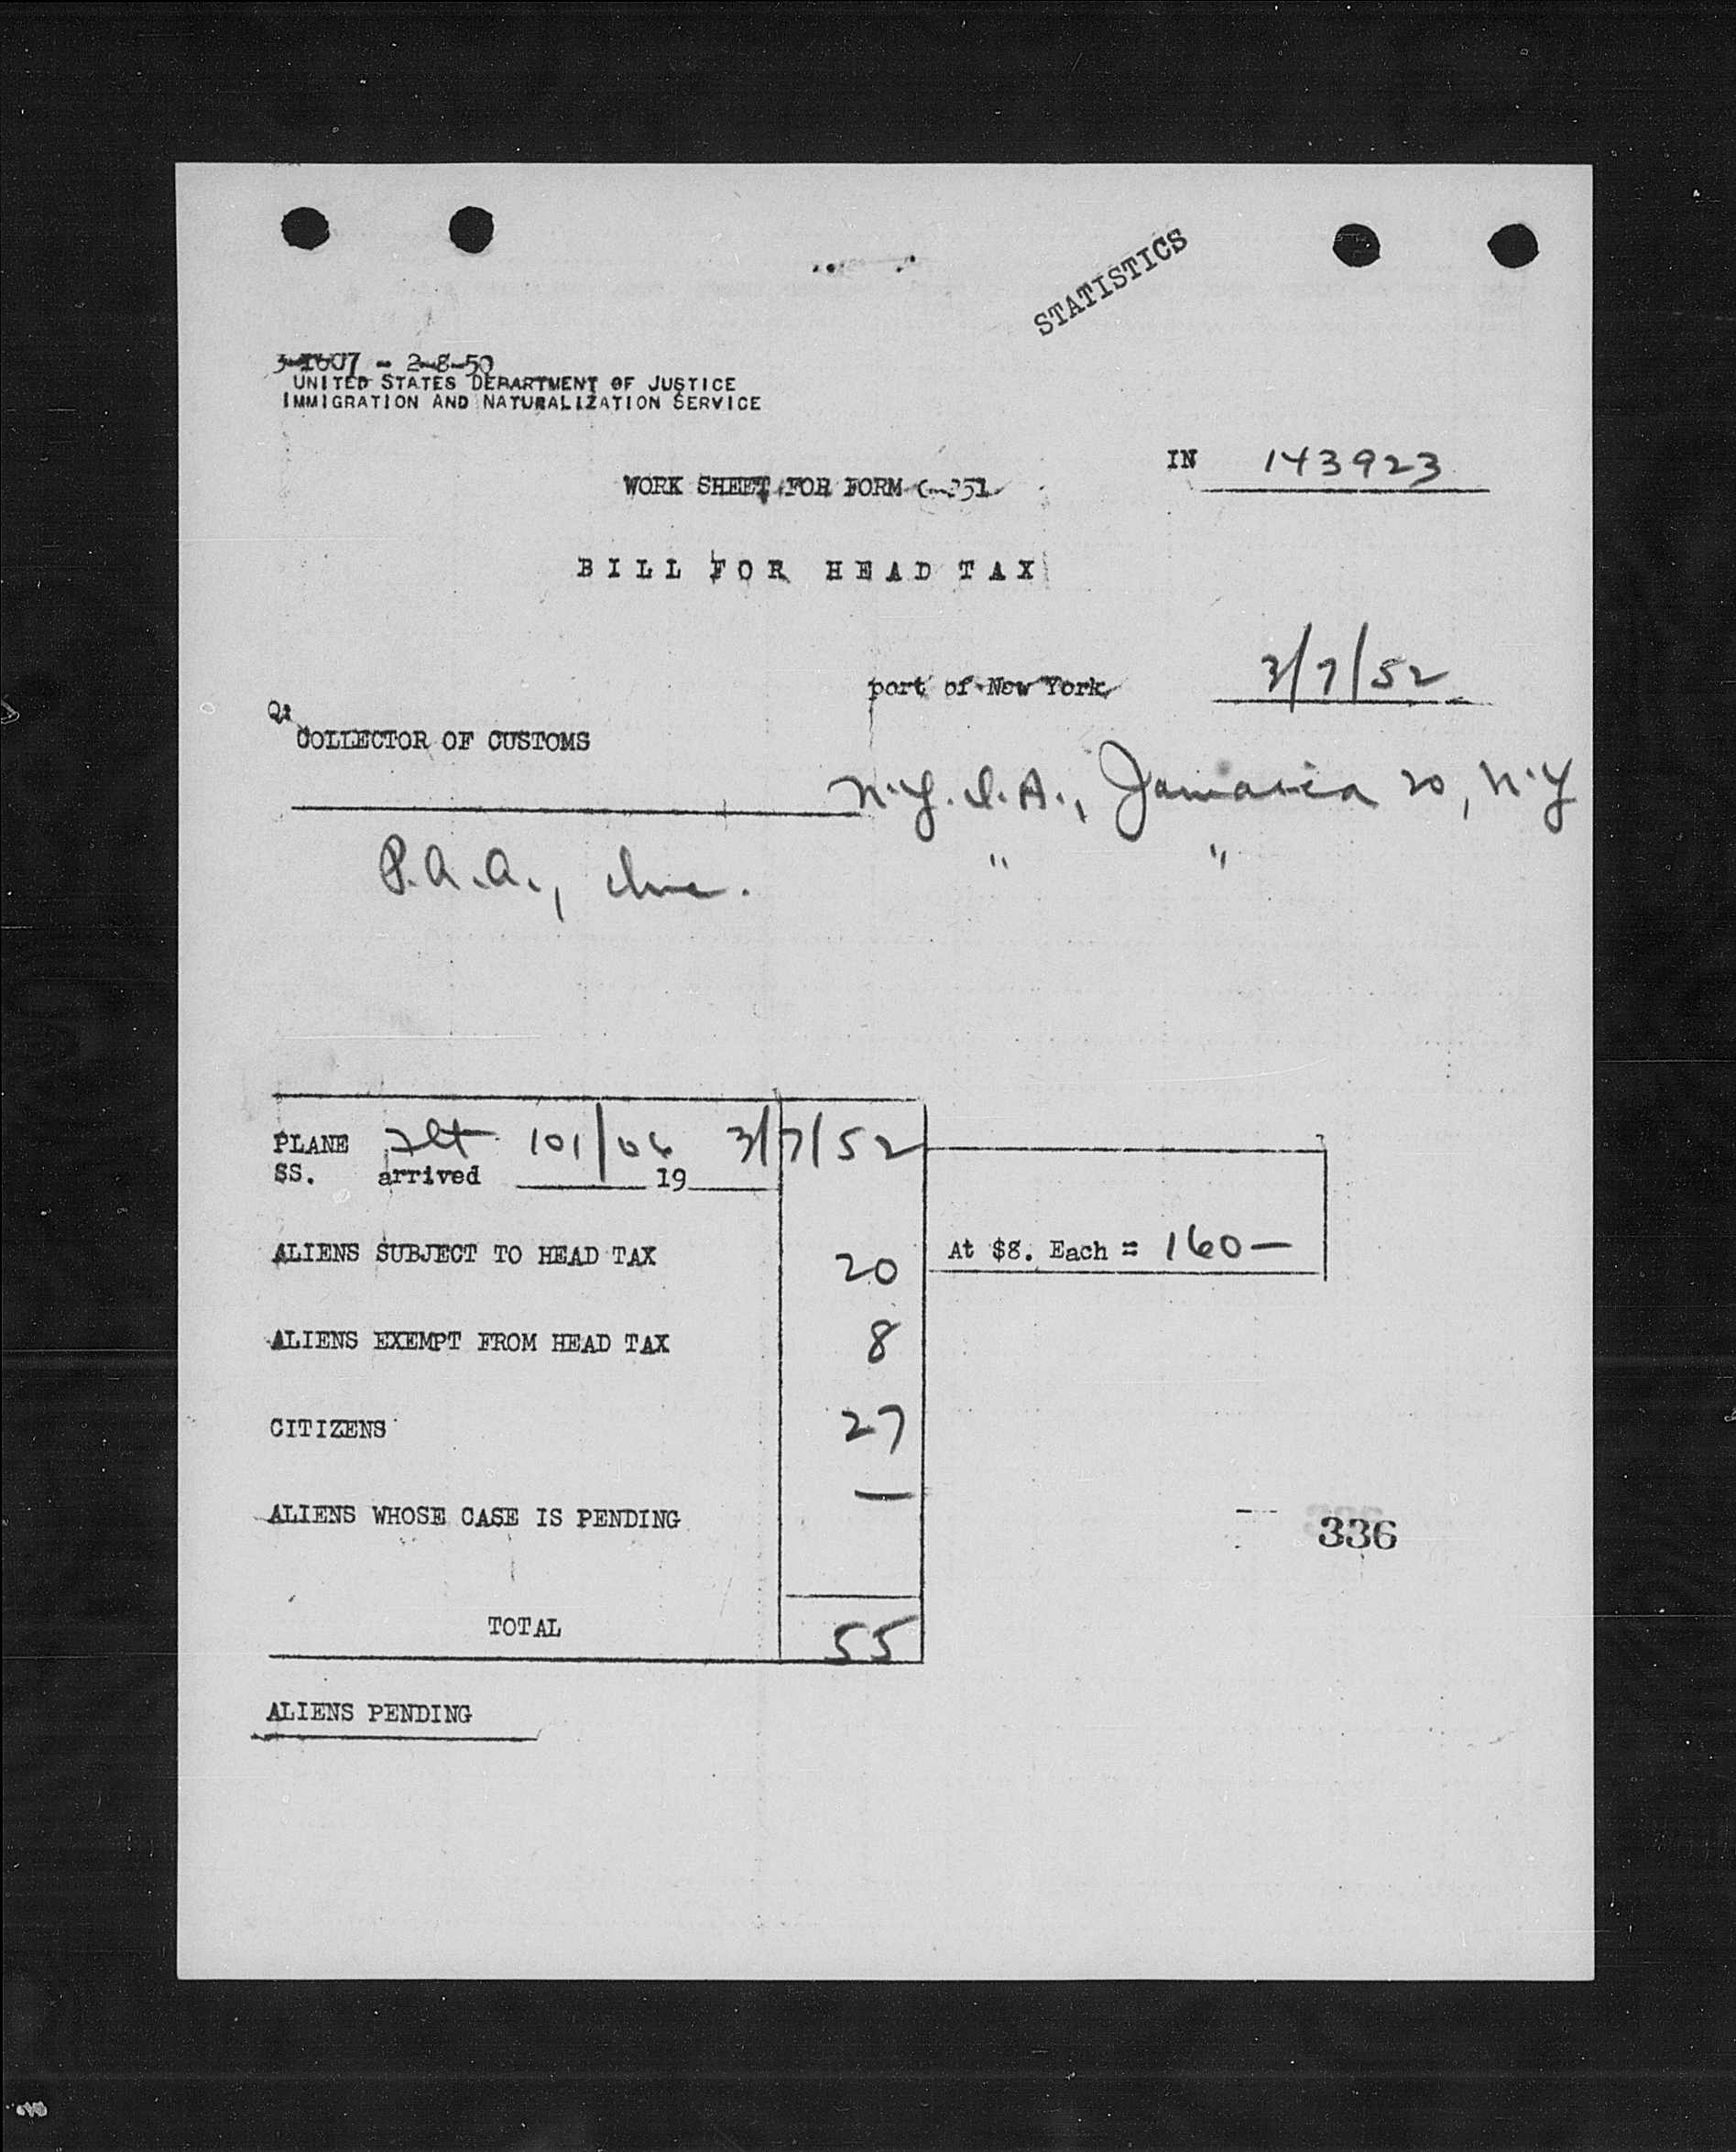 STATISTICS
3-1607 - 2-8-50
UNITED STATES DEPARTMENT OF JUSTICE
IMMIGRATION AND NATURALIZATION SERVICE
IN 143923
WORK SHEET FOR FORM
BILL FOR HEAD TAX
port of New York 3/7/52
COLLECTOR OF CUSTOMS
N.Y.I.A., Jamaica 20, N.Y
P.A.A., Inc. " "
PLANE Flt 101/06 3/7/52
SS. arrived 19
ALIENS SUBJECT TO HEAD TAX 20 At $8. Each = 160 —
ALIENS EXEMPT FROM HEAD TAX 8
CITIZENS 27
ALIENS WHOSE CASE IS PENDING —
336
TOTAL 55
ALIENS PENDING